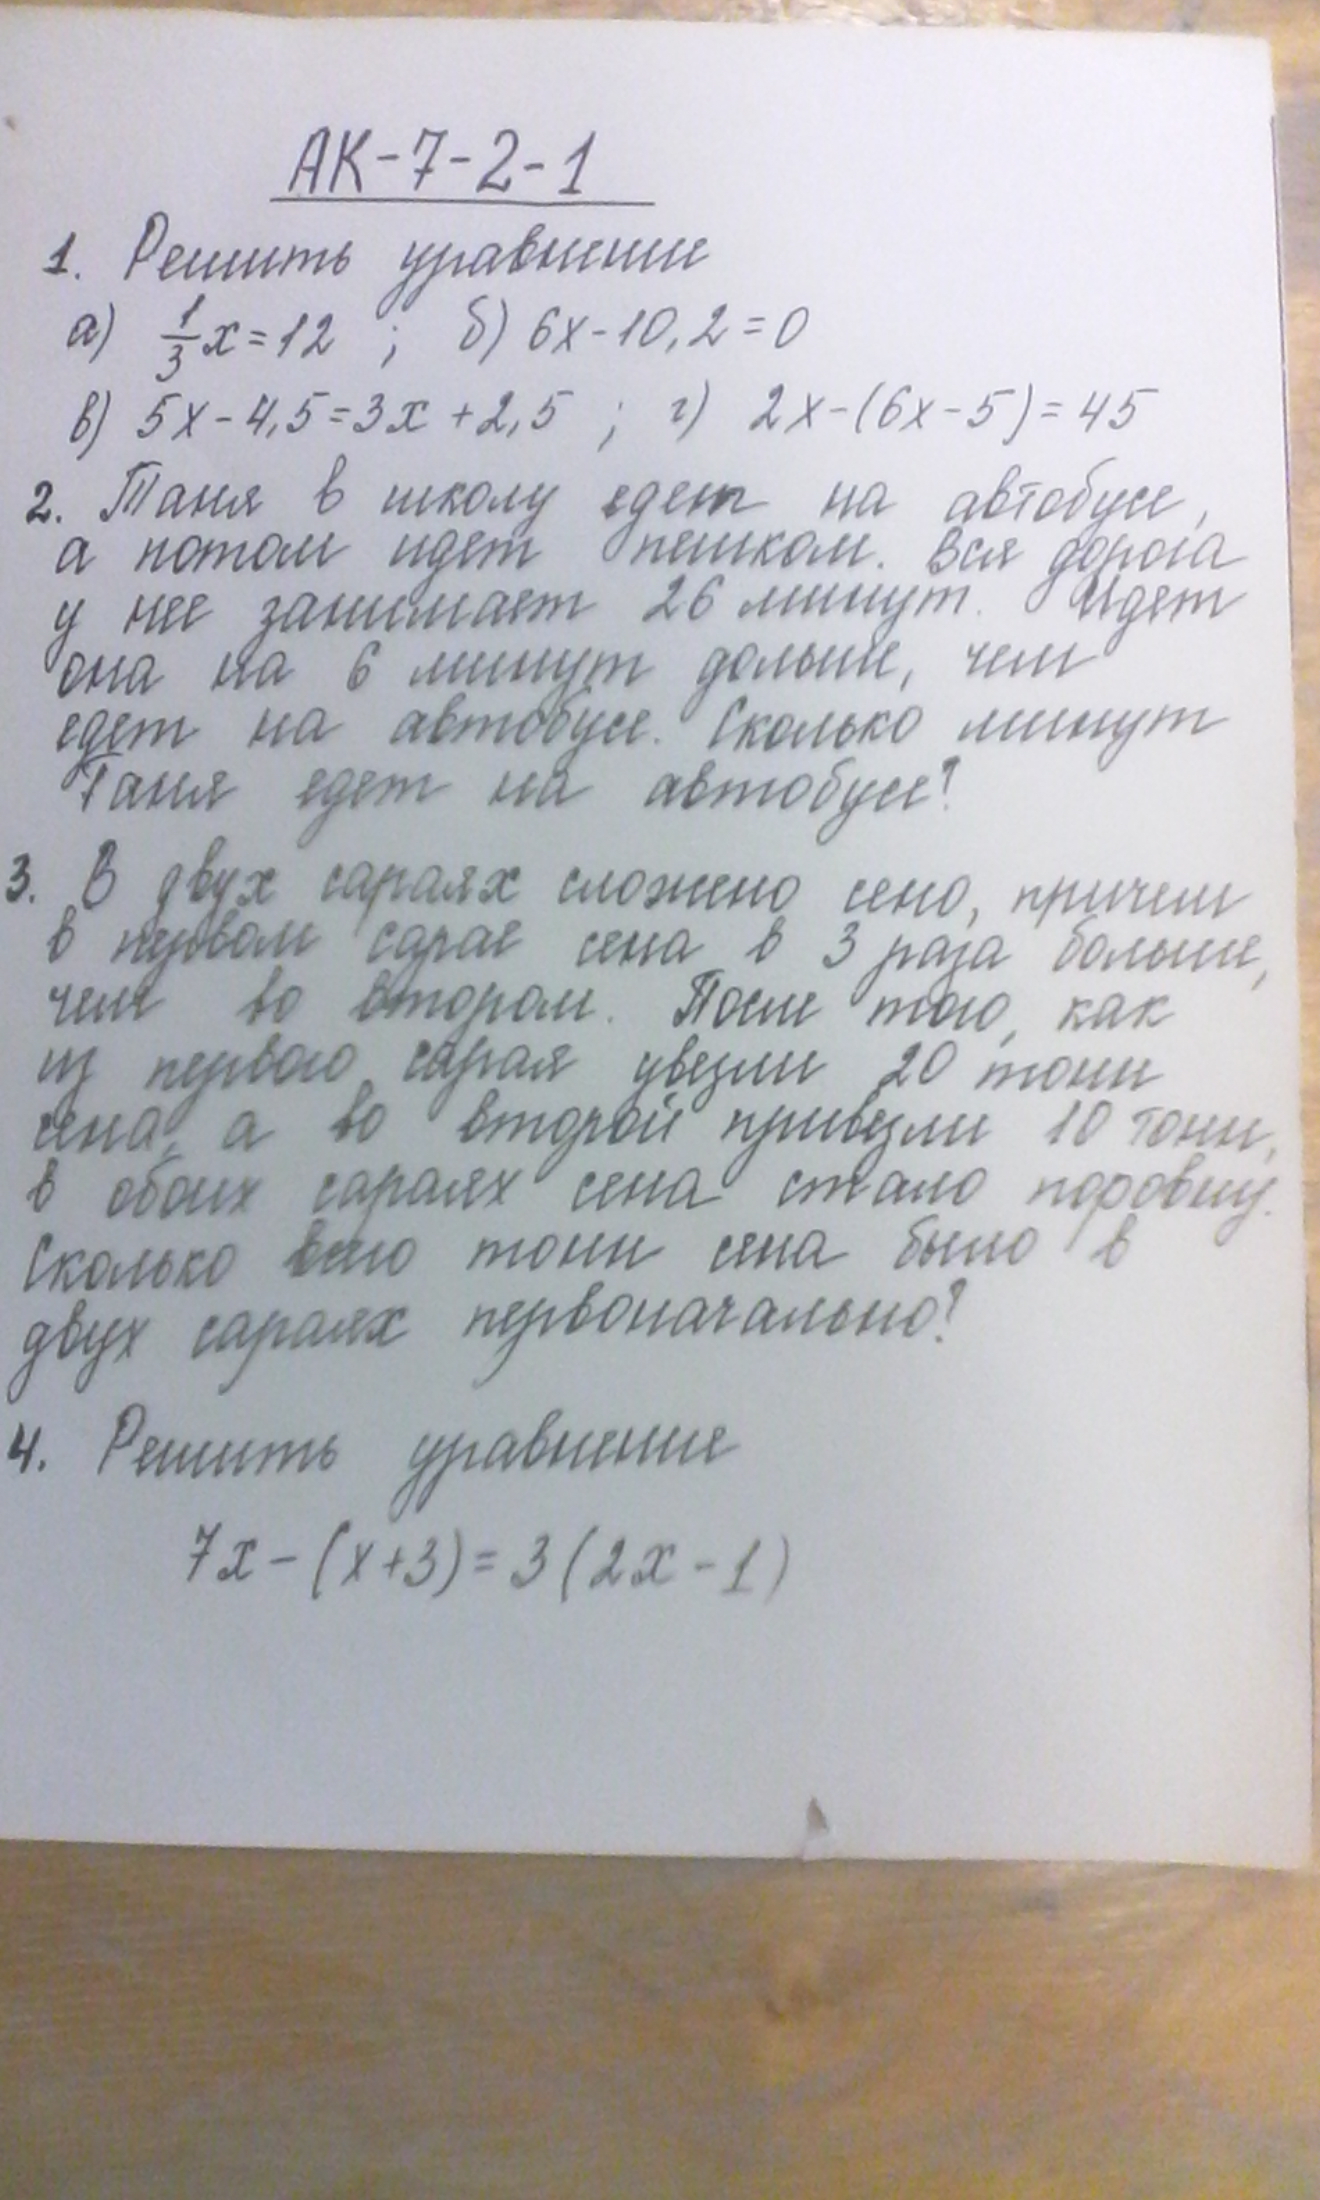 АК-7-2-1
1. Решить уравнение
а) 1/3 x = 12 ; б) 6x - 10,2 = 0
в) 5x - 4,5 = 3x + 2,5 ; г) 2x - (6x - 5) = 45
2. Таня в школу едет на автобусе,
а потом идет пешком. Вся дорога
у нее занимает 26 минут. Идет
она на 6 минут дольше, чем
едет на автобусе. Сколько минут
Таня едет на автобусе?
3. В двух сараях сложено сено, причем
в первом сарае сена в 3 раза больше,
чем во втором. После того, как
из первого сарая увезли 20 тонн
сена, а во второй привезли 10 тонн,
в обоих сараях сена стало поровну.
Сколько всего тонн сена было в
двух сараях первоначально?
4. Решить уравнение
7x - (x + 3) = 3 (2x - 1)